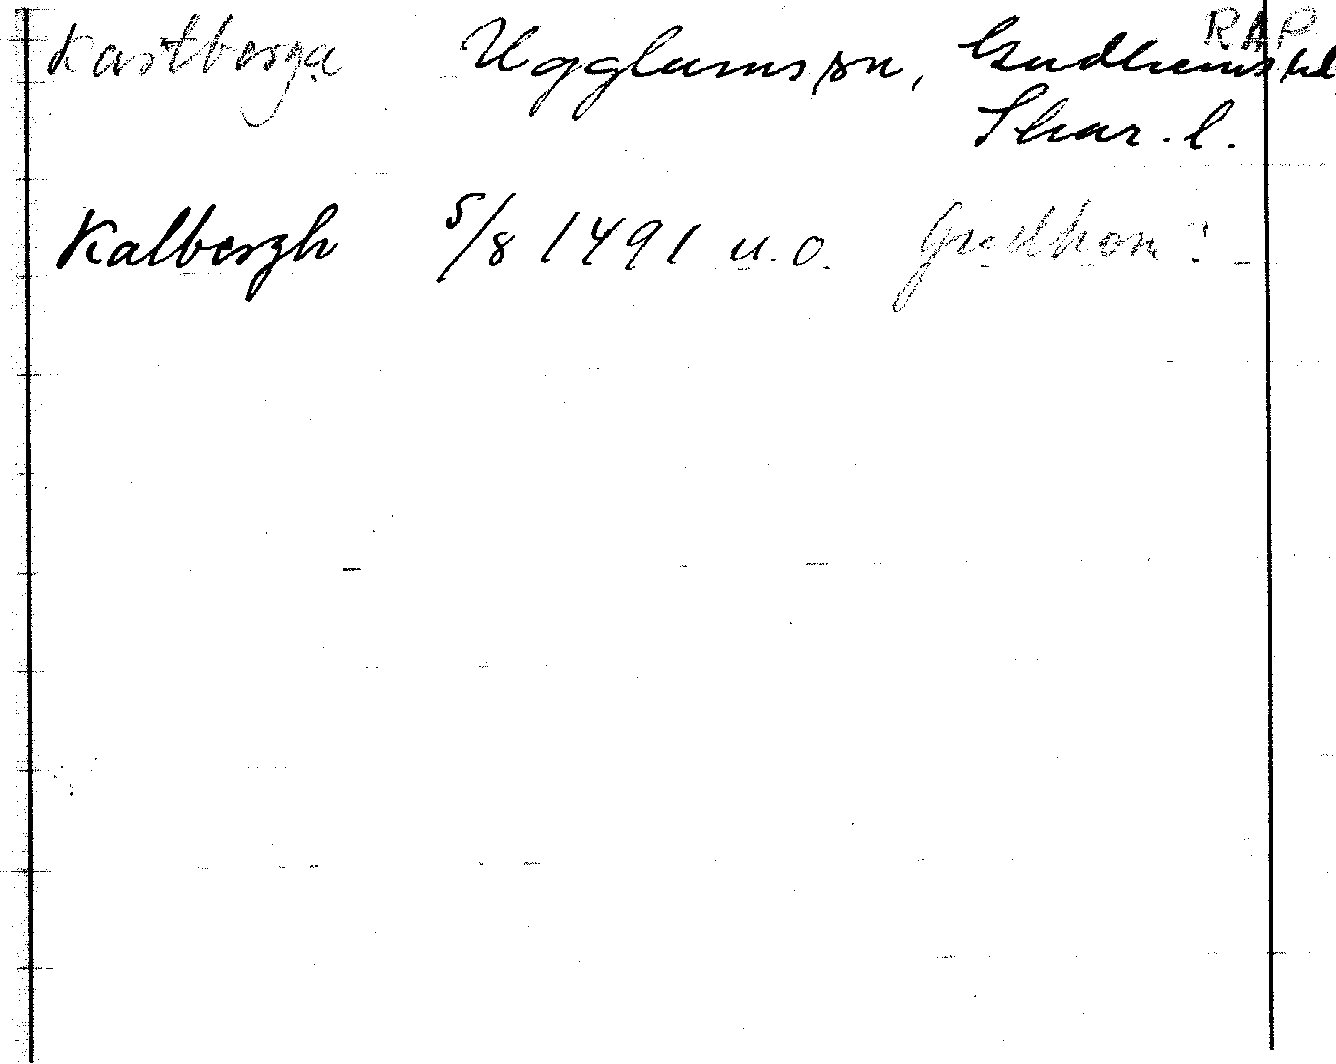 RAP
Kastberga Ugglums sn, Gudhems hd,
Skar. l.
Kalbergh 5/8 1491 u.o. Gudhem?